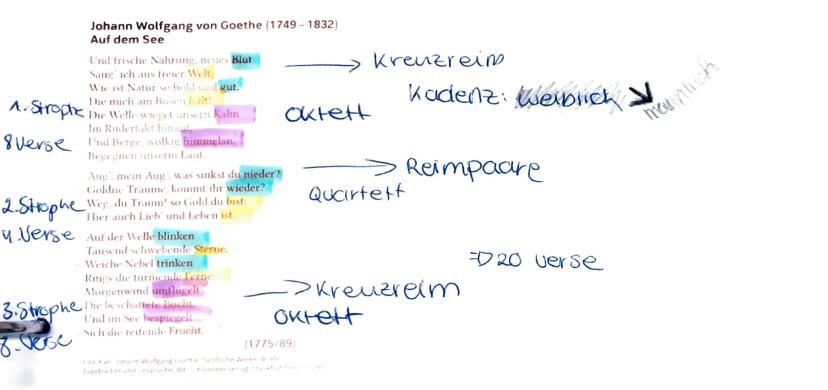 Johann Wolfgang von Goethe (1749 – 1832)
Auf dem See
Und frische Nahrung, neues Blut
Saug' ich aus freier Welt;
Wie ist Natur so hold und gut,
Die mich am Busen hält!
Die Welle wieget unsern Kahn
Im Rudertakt hinauf,
Und Berge, wolkig himmelan,
Begegnen unserm Lauf.
1. Strophe
8 Verse
Kreuzreim
Kadenz: weiblich
männlich
Oktett
Aug', mein Aug', was sinkst du nieder?
Goldne Träume, kommt ihr wieder?
Weg, du Traum! so Gold du bist;
Hier auch Lieb' und Leben ist.
2. Strophe
4 Verse
Reimpaare
Quartett
Auf der Welle blinken
Tausend schwebende Sterne,
Weiche Nebel trinken
Rings die türmende Ferne;
Morgenwind umflügelt
Die beschattete Bucht,
Und im See bespiegelt
Sich die reifende Frucht.
(1775/89)
3. Strophe
8. Verse
Kreuzreim
Oktett
⇒ 20 Verse